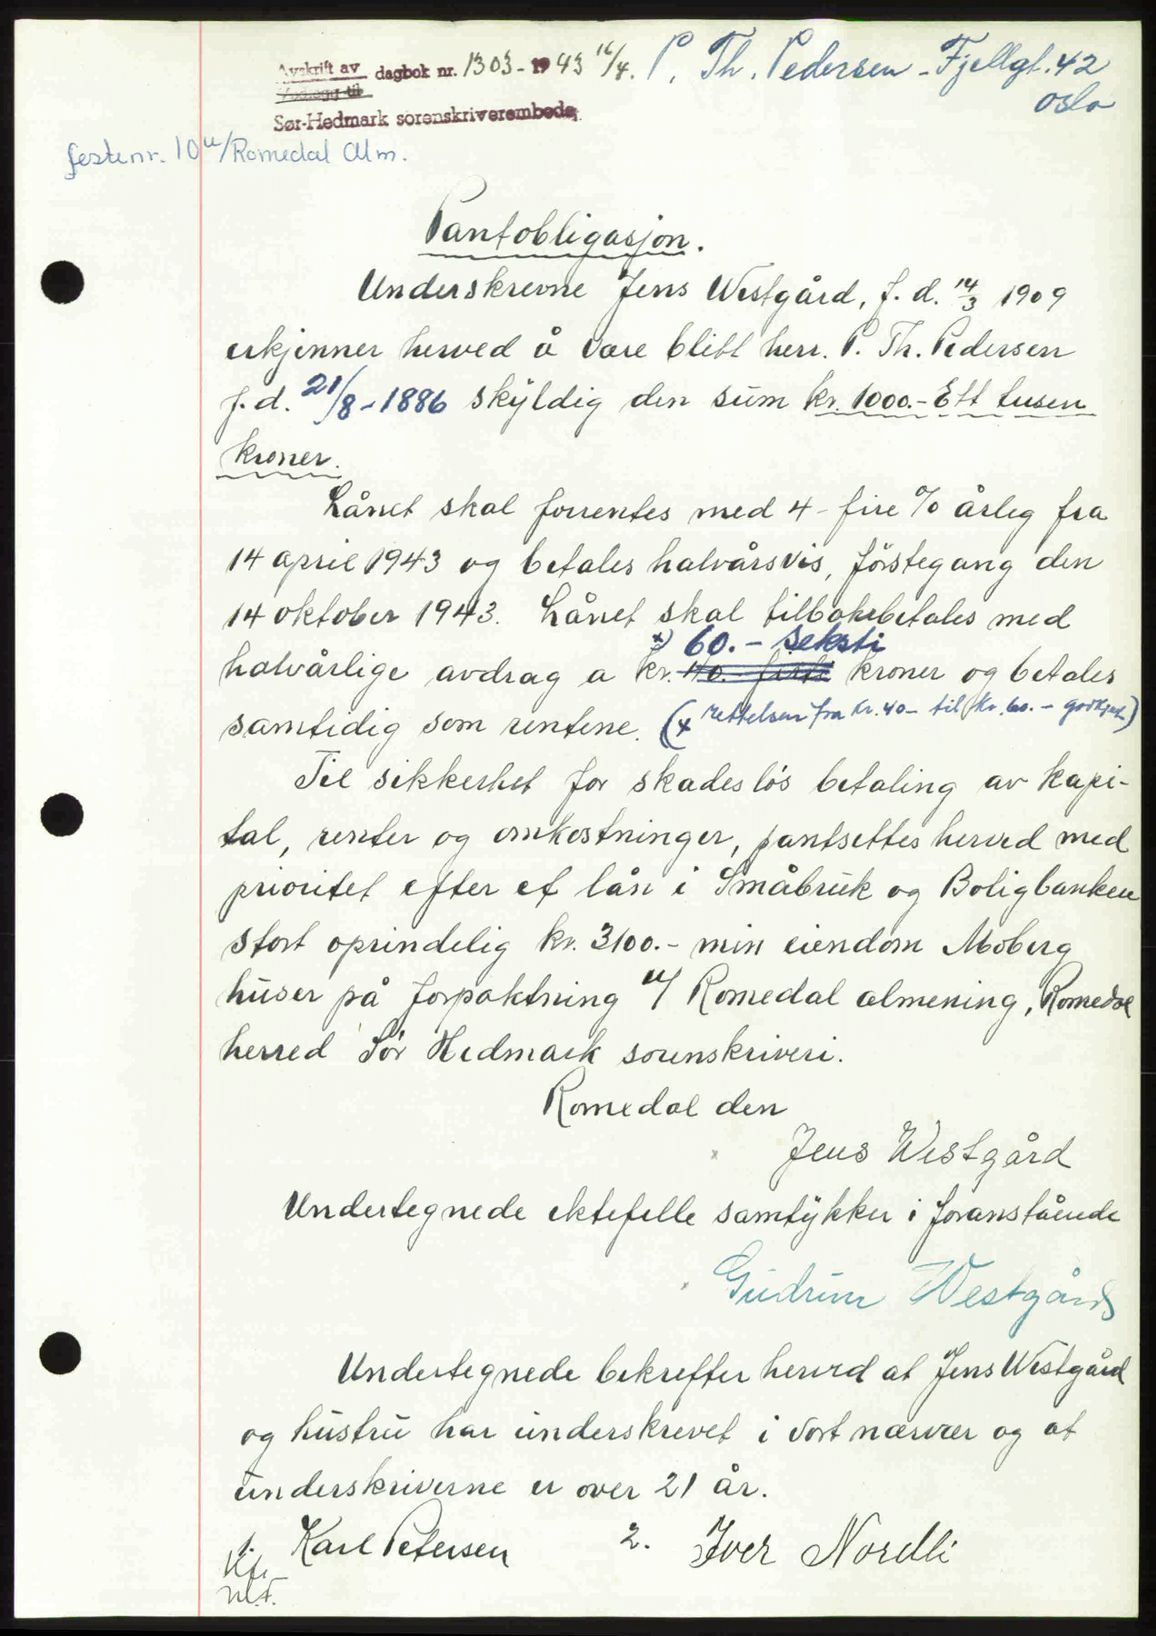 Avskrift av dagbok nr. 1303 - 1943 16/4. P. Th. Pedersen - Fjellgt. 42
Vedlegg til
Oslo
Sør-Hedmark sorenskriverembede
festenr. 10 u/Romedal Alm.
Pantobligasjon.
Underskrevne Jens Westgård, f. d. 14/3 1909
erkjenner herved å være blitt herr. P. Th. Pedersen
f. d. 21/8 - 1886 skyldig den sum kr. 1000.- Ett tusen
kroner.
Lånet skal forrentes med 4 - fire % årleg fra
14 april 1943 og betales halvårsvis, förstegang den
14 oktober 1943. Lånet skal tilbakebetales med
x) 60. - seksti
halvårlige avdrag a kr. 40.- förti kroner og betales
samtidig som rentene. (x rettelsen fra kr. 40 - til kr. 60. - godkjent)
Til sikkerhet for skadeslös betaling av kapi-
tal, renter og omkostninger, pantsettes herved med
prioritet efter et lån i Småbruk og Boligbanken
stort oprindelig kr. 3100.- min eiendom Moberg
huser på forpaktning u/ Romedal almening, Romedal
herred Sör Hedmark sorenskriveri.
Romedal den
Jens Westgård
Undertegnede ektefelle samtykker i foranstående
Gudrun Westgård
Undertegnede bekrefter herved at Jens Westgård
og hustru har underskrevet i vort nærvær og at
underskriverne er over 21 år.
1. Karl Petersen 2. Iver Nordli